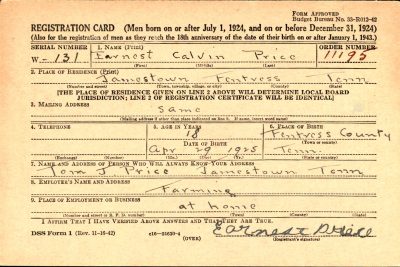 FORM APPROVED
Budget Bureau No. 33-R012-42
REGISTRATION CARD (Men born on or after July 1, 1924, and on or before December 31, 1924)
(Also for the registration of men as they reach the 18th anniversary of the date of their birth on or after January 1, 1943.)
SERIAL NUMBER 1. NAME (Print) ORDER NUMBER
W-131 Earnest Calvin Price 11195
(First) (Middle) (Last)
2. PLACE OF RESIDENCE (Print)
Jamestown Fentress Tenn
(Number and street) (Town, township, village, or city) (County) (State)
[THE PLACE OF RESIDENCE GIVEN ON LINE 2 ABOVE WILL DETERMINE LOCAL BOARD
JURISDICTION; LINE 2 OF REGISTRATION CERTIFICATE WILL BE IDENTICAL]
3. MAILING ADDRESS
Same
(Mailing address if other than place indicated on line 2. If same, insert word same)
4. TELEPHONE 5. AGE IN YEARS 6. PLACE OF BIRTH
18 Fentress County
DATE OF BIRTH (Town or county)
Apr 29 1925 Tenn.
(Exchange) (Number) (Mo.) (Day) (Yr.) (State or country)
7. NAME AND ADDRESS OF PERSON WHO WILL ALWAYS KNOW YOUR ADDRESS
Tom J Price Jamestown Tenn
8. EMPLOYER'S NAME AND ADDRESS
Farming
9. PLACE OF EMPLOYMENT OR BUSINESS
at home
(Number and street or R. F. D. number) (Town) (County) (State)
I AFFIRM THAT I HAVE VERIFIED ABOVE ANSWERS AND THAT THEY ARE TRUE.
DSS Form 1 (Rev. 11-16-42) (OVER) Earnest Price
(Registrant's signature)